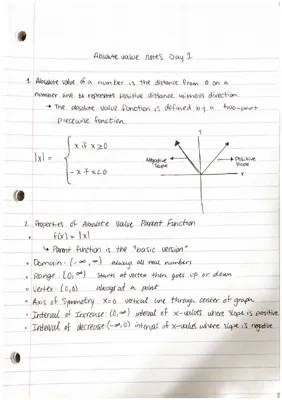 Absolute value notes Day 1
1. Absolute value of a number is the distance from 0 on a
number line or represents positive distance without direction.
→ The absolute value function is defined by a two-part
piecewise function
|x| = { x if x ≥ 0
-x if x < 0
Negative slope
Positive slope
y
x
2. Properties of Absolute Value Parent Function
• f(x) = |x|
↳ Parent function is the "basic version"
• Domain: (-∞, ∞) always all real numbers
• Range: [0, ∞) starts at vertex then goes up or down
• Vertex: (0,0) always at a point
• Axis of Symmetry: x=0 vertical line through center of graph
• Interval of Increase: (0, ∞) interval of x-values where slope is positive
• Interval of decrease: (-∞, 0) interval of x-values where slope is negative